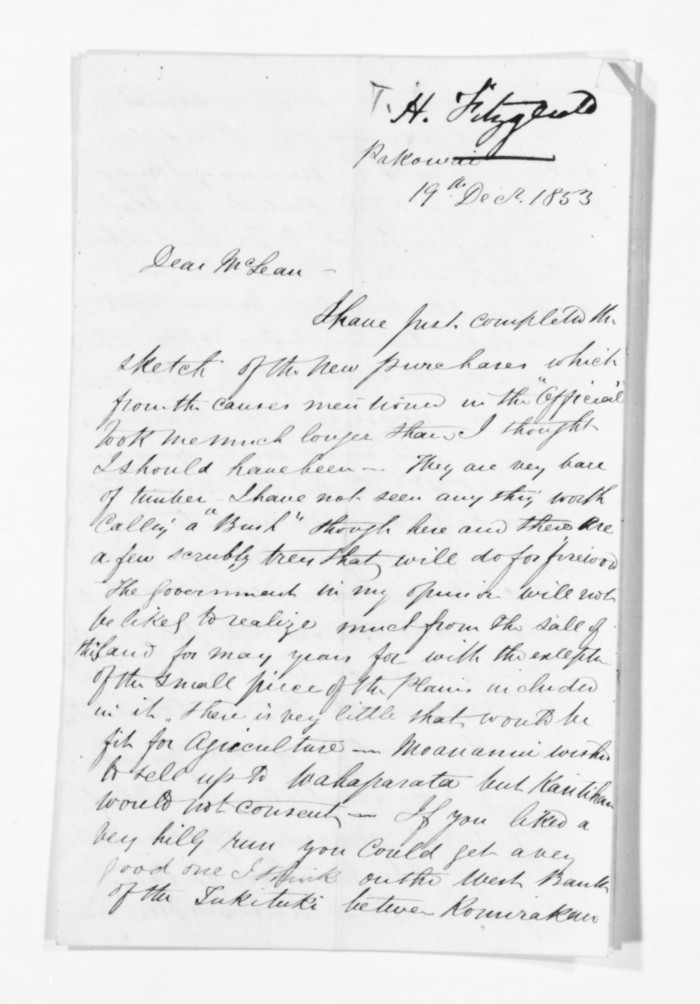 T. H. Fitzgerald
Pakowai
19th Decr. 1853
Dear McLean -
I have just completed the
sketch of the new purchases which
from the causes mentioned in the "Official"
took me much longer than I thought
I should have been - They are very bare
of timber I have not seen any thing worth
calling a "Bush" though here and there are
a few scrubby trees that will do for firewood
The Government in my opinion will not
be likely to realize much from the sale of
this land for may years for with the exceptn
of the small piece of the Plains included
in it. There is very little that would be
fit for Agriculture - Moananui wishes
to sell up to Wahaparata but
would not consent - If you liked a
very hilly run you could get a very
good one I think on the West Bank
of the Tukituki between